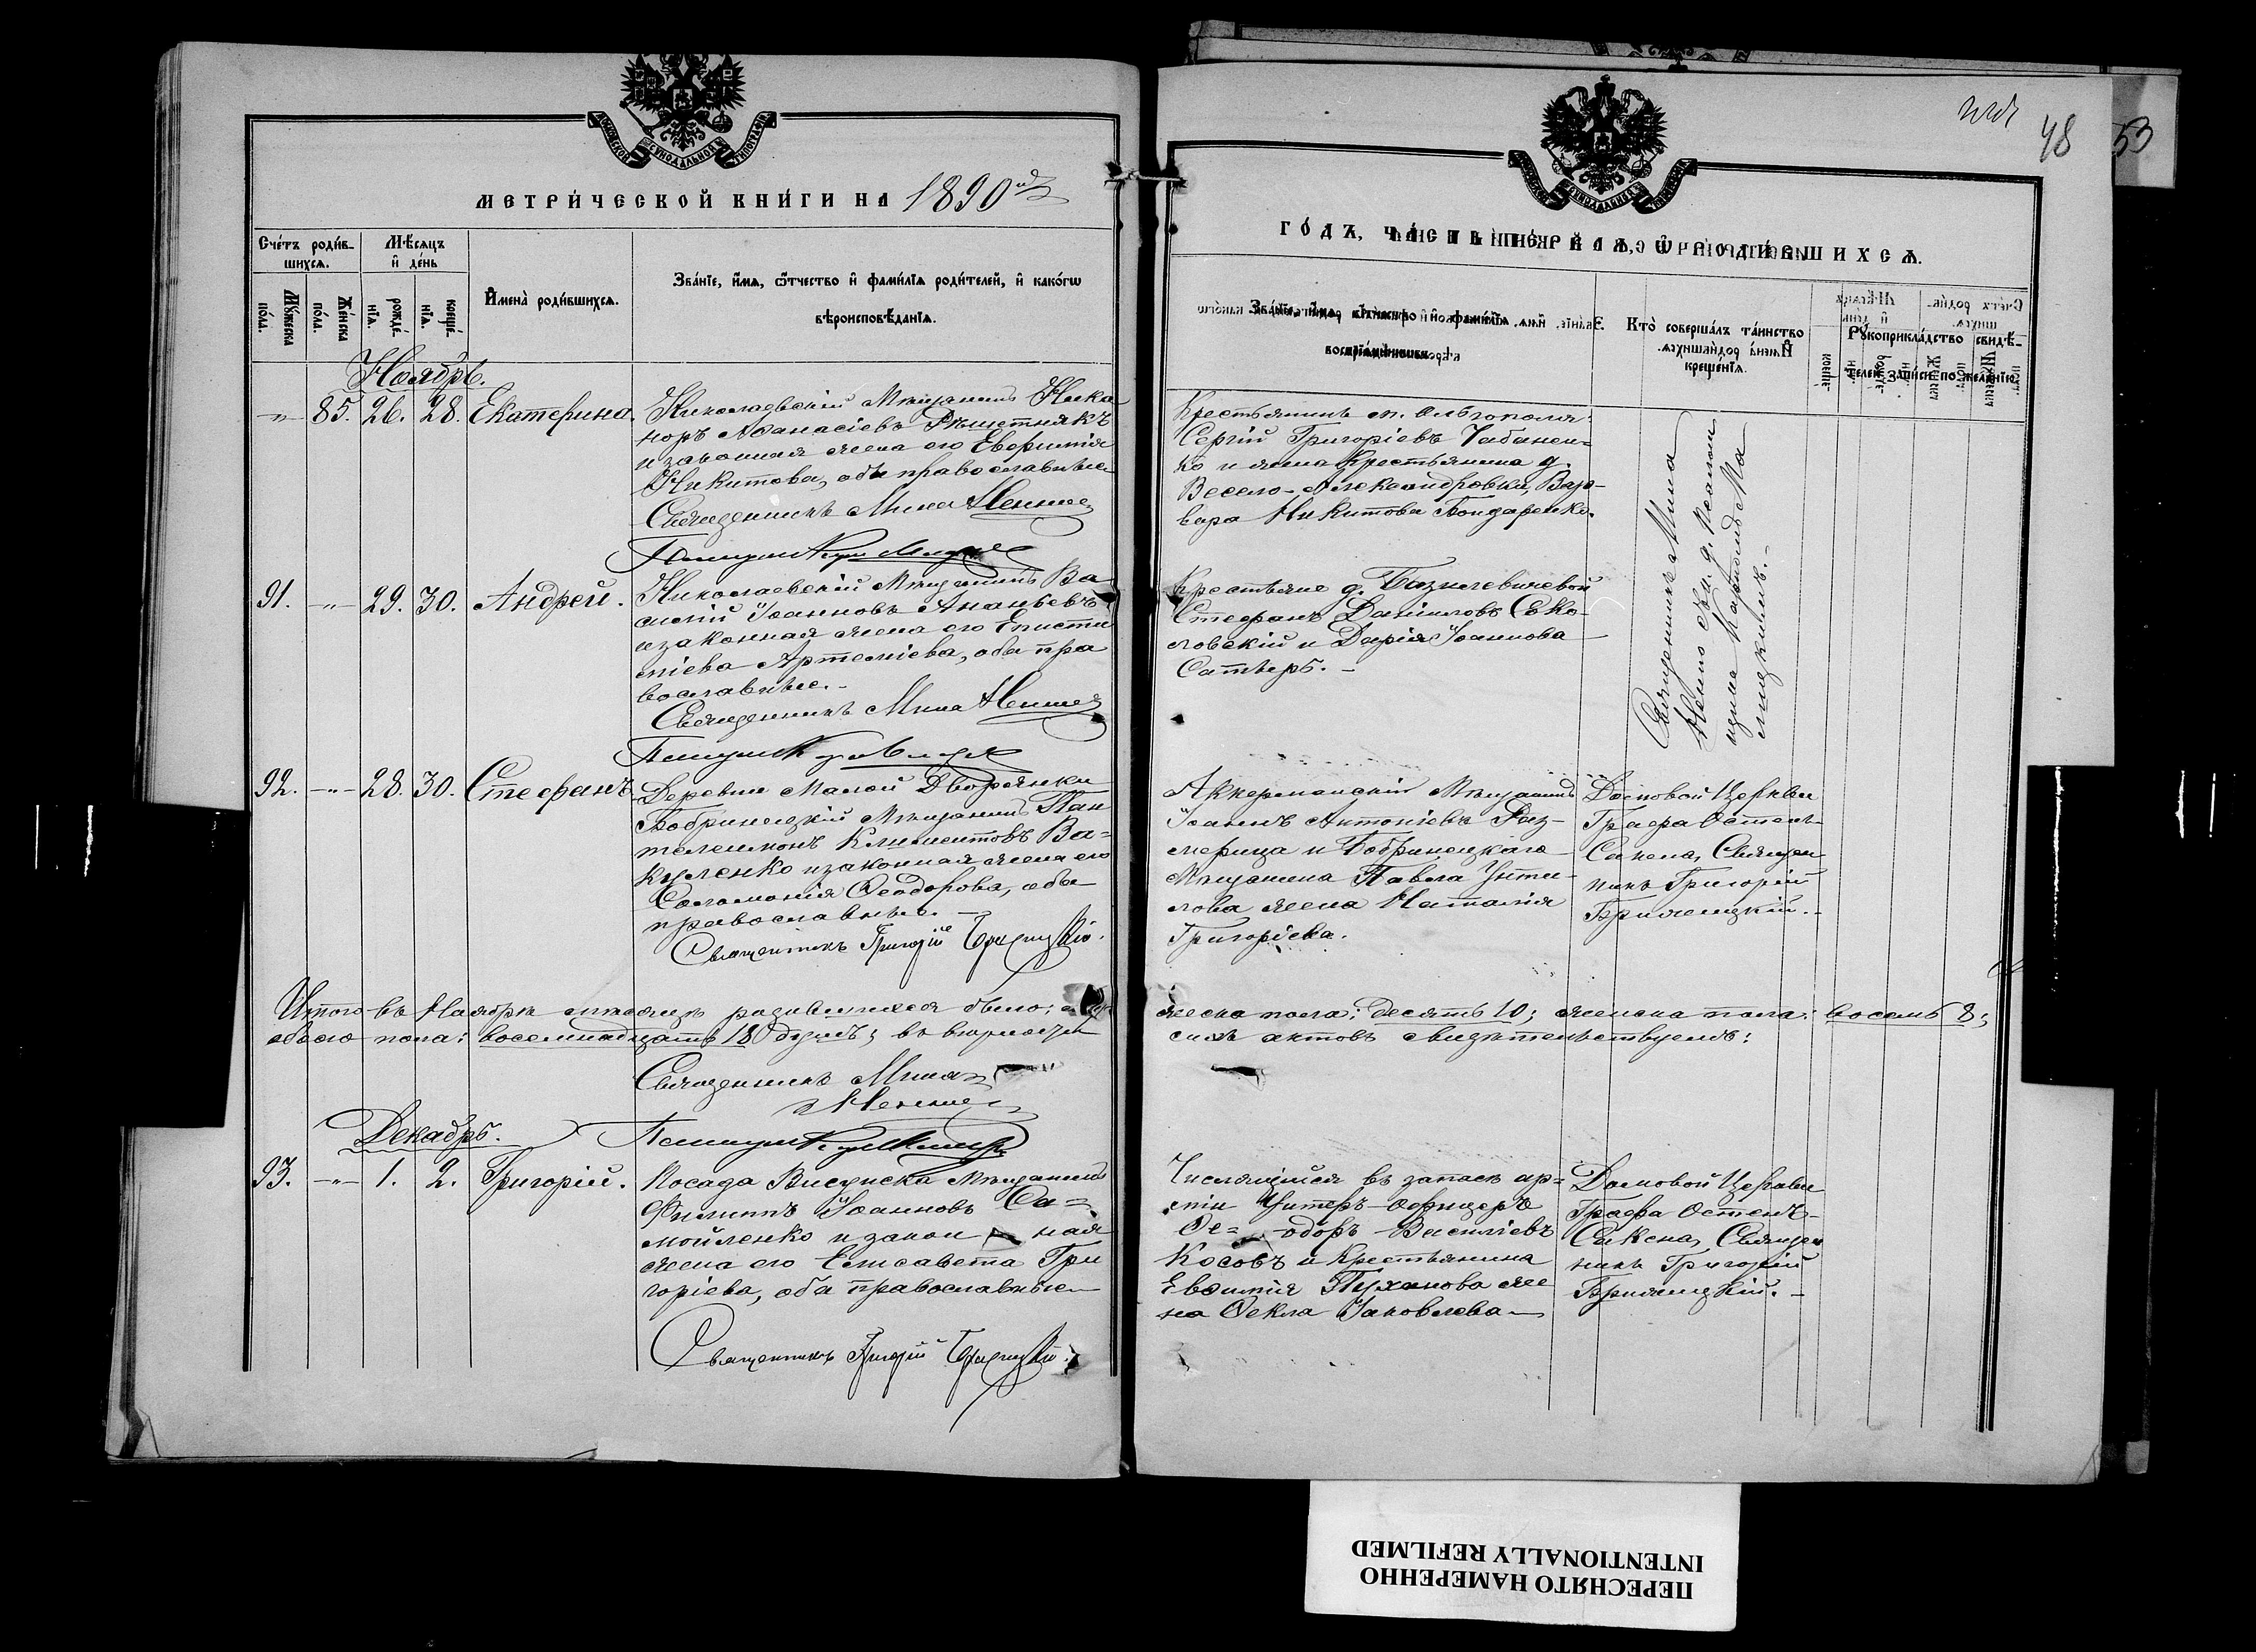 МЕТРИ́ЧЕСКОЙ КНИ́ГИ НА 1890 й
Сче́тъ роди́в-
шихсѧ.
Мѣ́сѧцъ
и҆ де́нь
Мꙋ́жеска
по́ла.
Же́нска
по́ла.
рожде́-
нїѧ.
креще́-
нїѧ.
И҆мена̀ роди́вшихсѧ.
Зва́нїе, и҆́мѧ, ѻ҆́тчество и҆ фами́лїѧ роди́телей, и҆ како́гѡ
вѣроисповѣ́данїѧ.
Ноябрь.
-"- 85. 26. 28. Екатерина.
Николаевскій Мѣщанинъ Ника
норъ Аѳанасіевъ Рѣшетнякъ
и законная жена его Евфимія
Никитова, оба православные
Священникъ Мина
91. -"- 29. 30. Андрей.
Николаевскій Мѣщанинъ Ва
силій Іоанновъ Ананьевъ
и законная жена его Еписти
мія Артеміева, оба пра
вославные.-
Священникъ Мина
92. -"- 28. 30. Стефанъ
Деревни Малой Дворянки
Бобринецкій Мѣщанинъ Пан
телеимонъ Климентовъ Ва=
куленко и законная жена его
Соломонія Ѳеодорова, оба
православные. -
Священникъ Григорій
Итого въ Ноябрѣ мѣсяцѣ родившихся было:
обоего пола: восемнадцать 18 душъ; въ вѣрности
Священникъ Мина
Декабрь.
93. -"- 1. 2. Григорій.
Посада Висунска Мѣщанинъ
Филиппъ Іоанновъ Са=
мойленко и закон ная
жена его Елисавета Гри
горіева, оба православные
Священникъ Григорій
48
53
ГО́ДЪ, ЧА́СТЬ ПЕ́РВАѦ, Ѡ РОДИ́ВШИХСѦ.
Кто̀ соверша́лъ та́инство
креще́нїѧ.
Рꙋкоприкла́дство свидѣ́-
телей за́писи по жела́нїю
Крестьянинъ м. Ольгополя
Сергій Григоріевъ Чабанен=
ко и жена Крестьянина д.
Весело-Александровки, Вар-
вара Никитова Бондаренко.
Священникъ Мина
Крестьяне д. Базилевичевой
Стефанъ Даниловъ Соко-
ловскій и Дарія Іоаннова
Сатыръ. -
Аккерманскій Мѣщанинъ
Іоаннъ Антоніевъ Раз-
мерица и Бобринецкаго
Мѣщанина Павла
лова жена Наталія
Григоріева.
Домовой Церкви
Графа Остенъ-
Сакена, Священ
никъ Григорій
жеска пола: десять 10; женска пола: восемь 8;
сихъ актовъ свидѣтельствуемъ:
Числящійся въ запасѣ ар=
міи Унтеръ-Офицеръ
Ѳе= одоръ Василіевъ
Косовъ и Крестьянина
Евѳимія Пуханова же
на Ѳекла Іаковлева
Домовой Церкви
Графа Остенъ-
Сакена, Священ
никъ Григорій
ПЕРЕСНЯТО НАМЕРЕННО
INTENTIONALLY REFILMED